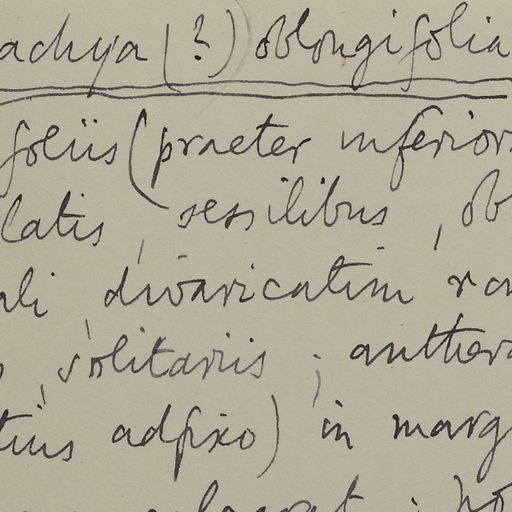 achya (?) oblongifolia
foliis (praeter inferiori
latis, sessilibus, ob
ali divaricatim ra
, solitariis ; anthera
tius adfixo) in marg